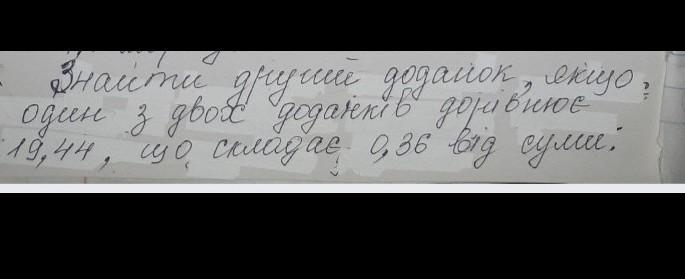 Знайти другий доданок, якщо
один з двох доданків дорівнює
19,44, що складає 0,36 від суми.